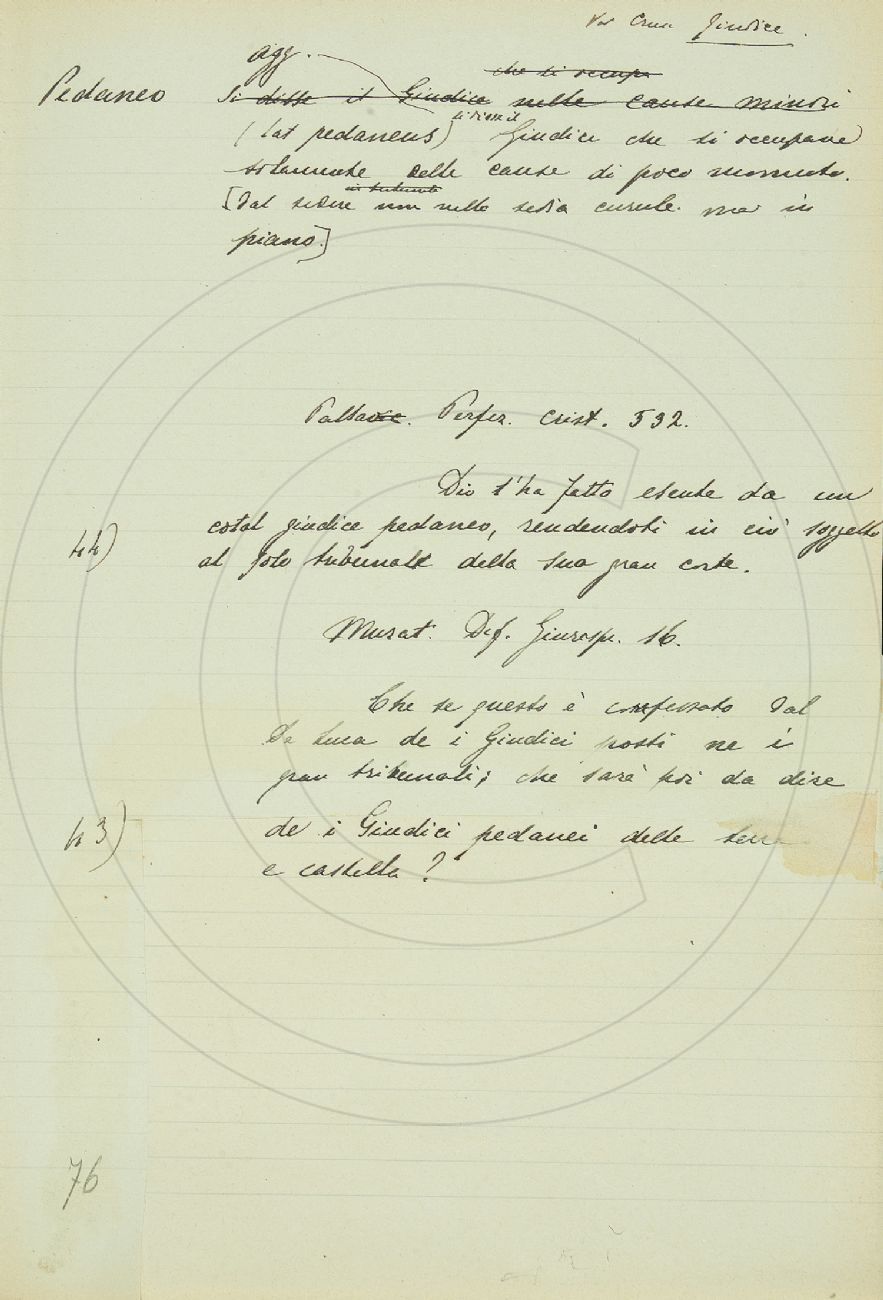 Ver Crus Giudice.
agg.
che si occupa
Pedaneo Si disse il Giudice nelle cause minori
(lat pedaneus) si disse il Giudice che si occupava
solamente delle cause di poco momento.
[Dal sedere non nella sedia curule ma in
piano.]
Pallavic. Perfez. Crist. 532.
Dio t'ha fatto esente da un
44) cotal giudice pedaneo, rendendoti in ciò soggetto
al solo tribunale della sua gran corte.
Murat. Dif. Giurispr. 16.
Che se questo è confessato dal
De Luca de i Giudici posti ne i
gran tribunali; che sarà poi da dire
43) de i Giudici pedanei delle terre
e castella?
76